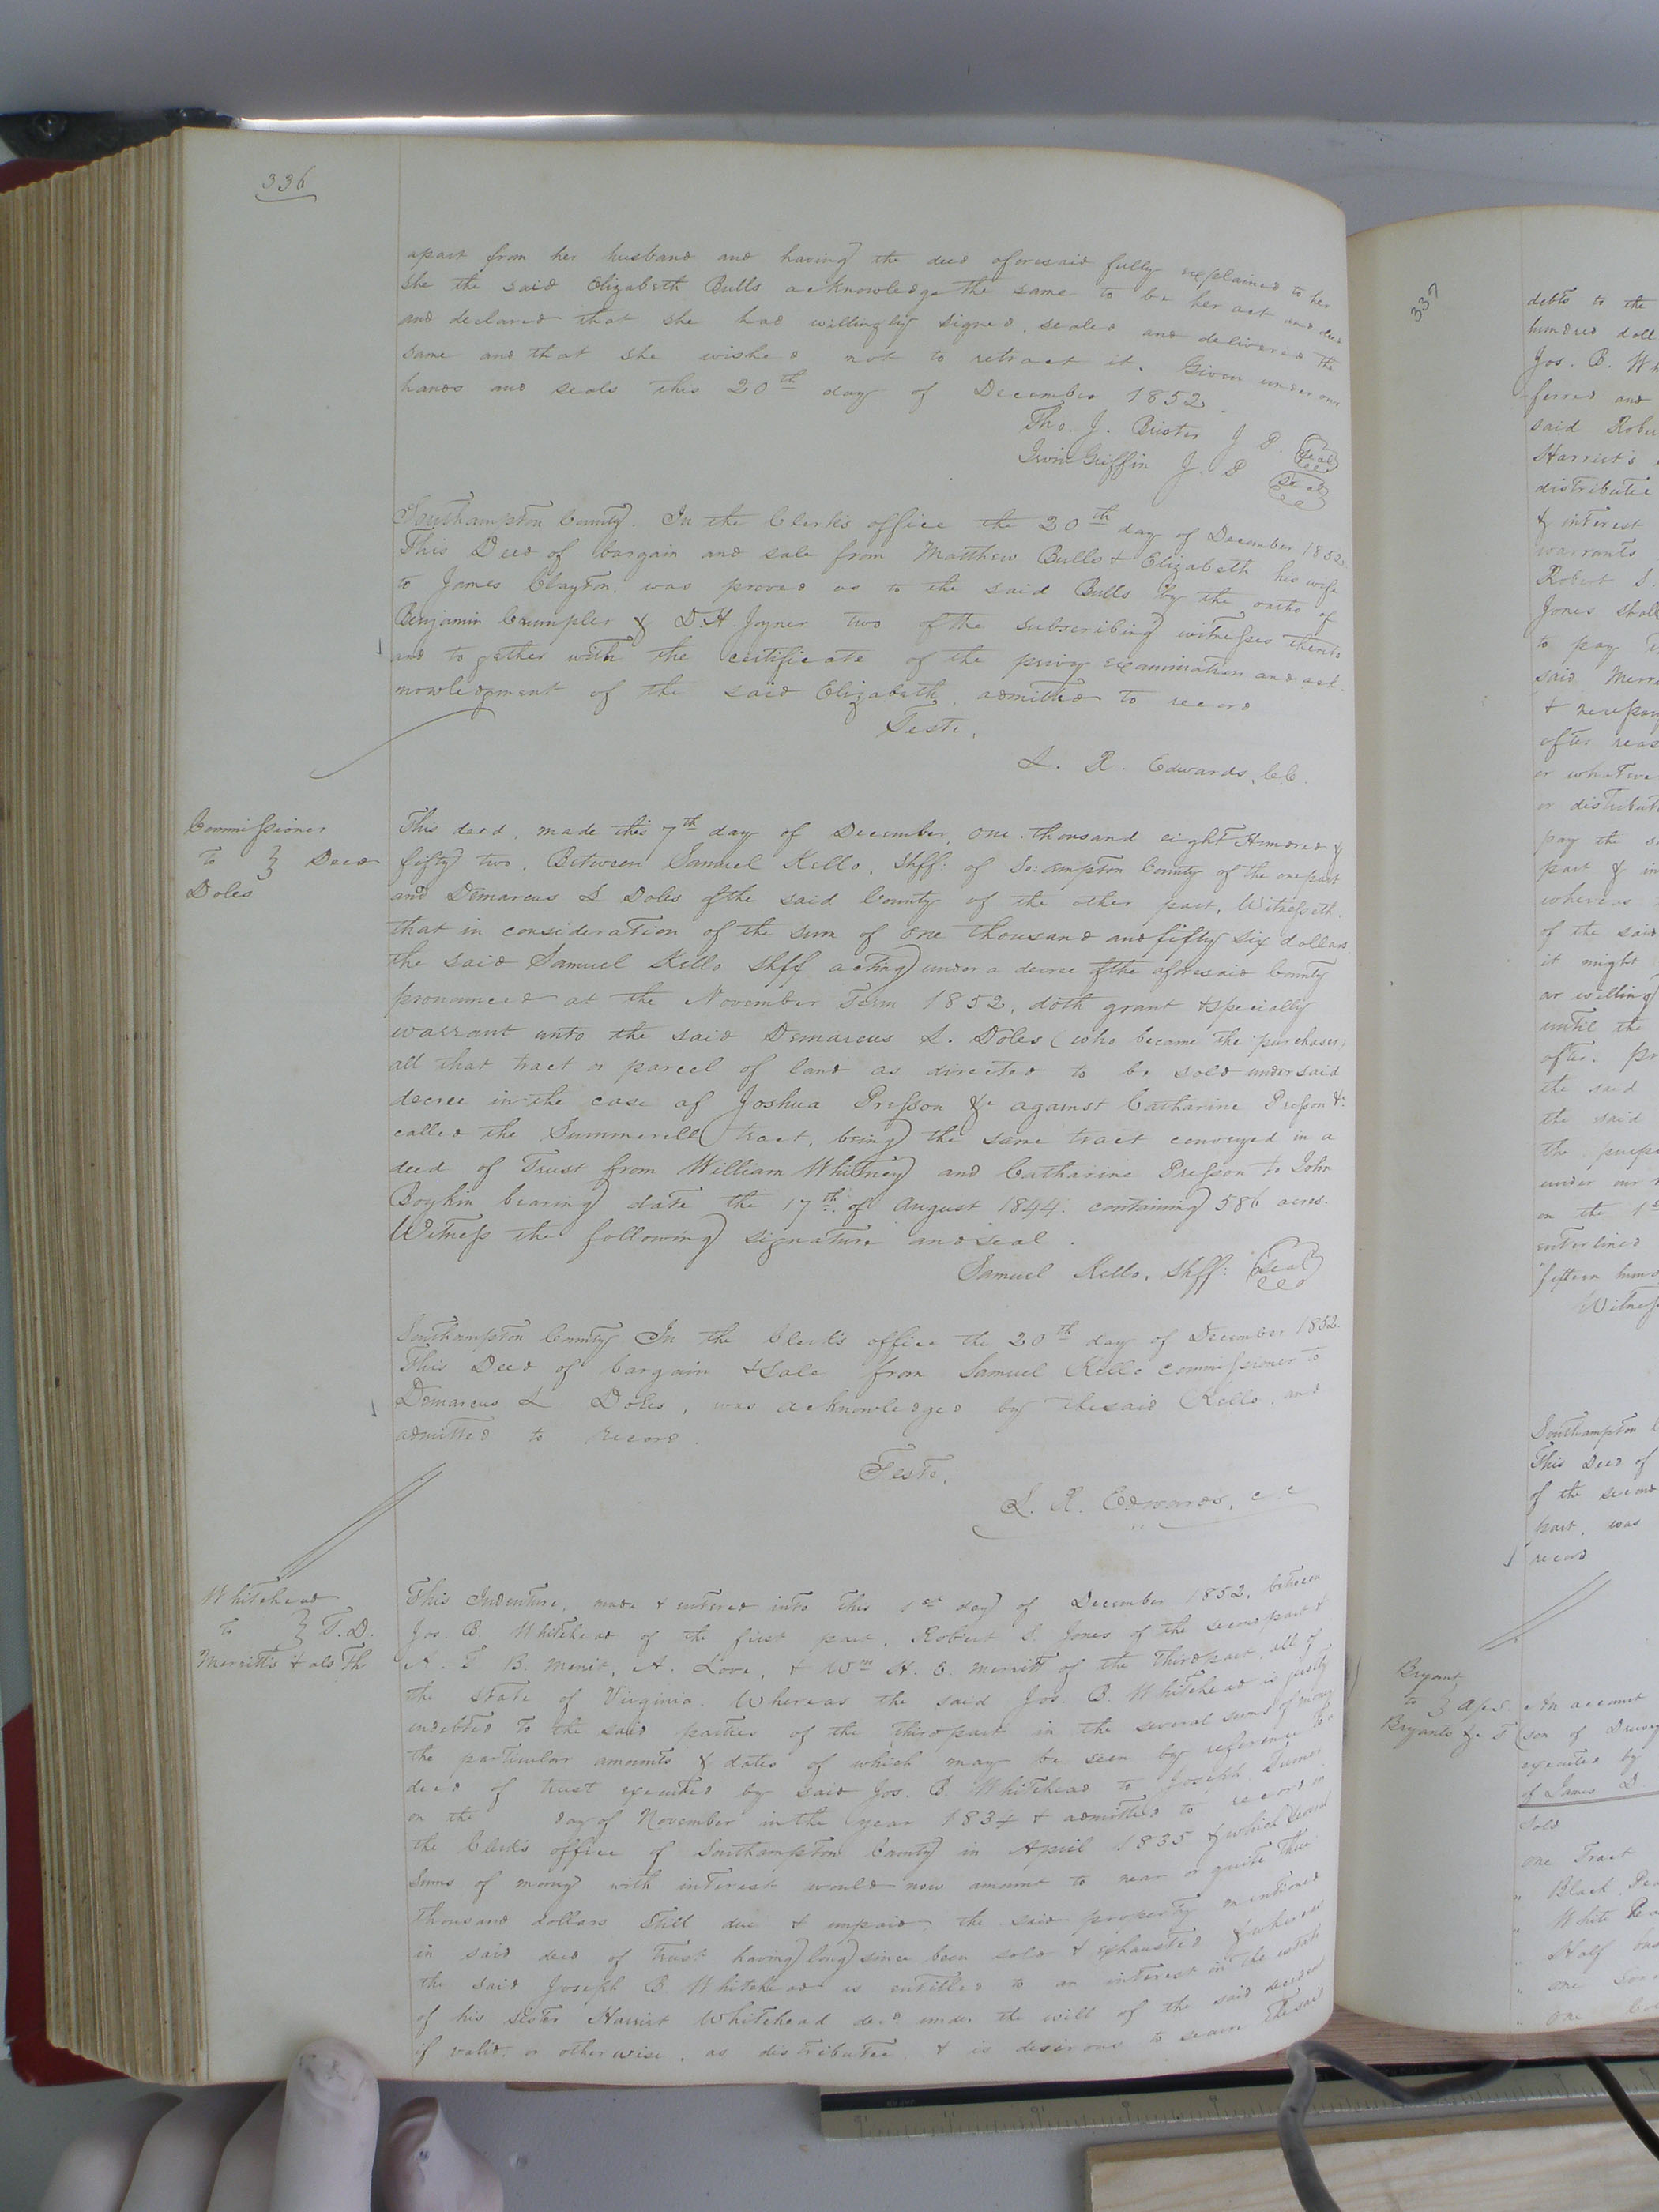 336
apart from her husband and having the deed aforesaid fully explained to her
she the said Elizabeth Bulls acknowledge the same to be her act and deed
and declared that she had willingly signed, sealed and delivered the
same and that she wished not to retract it. Given under our
hands and seals this 20th day of December 1852.
Tho. J. Brister J P. Seal
Irvin Griffin J. P Seal
Southampton County. In the Clerk's office the 20th day of December 1852.
This Deed of bargain and sale from Matthew Bulls & Elizabeth his wife
to James Clayton was proved as to the said Bulls by the oaths of
Benjamin Crumpler & D. H. Joyner two of the subscribing witnesses thereto
and to gather with the certificate of the privy examination and ack-
nowledgment of the said Elizabeth, admitted to record
Teste,
L. R. Edwards, C.C.
Commissioner
to } Deed
Doles
This deed, made this 7th day of December, one thousand eight Hundred &
fifty two, Between Samuel Kello, Shff: of So:ampton County of the one part
and Demarcus L Doles of the said County of the other part, Witnesseth:
that in consideration of the sum of one thousand and fifty six dollars
the said Samuel Kello Shff acting under a decree of the aforesaid County
pronounced at the November Term 1852, doth grant & specially
warrant unto the said Demarcus L. Doles (who became the purchaser)
all that tract or parcel of land as directed to be sold under said
decree in the case of Joshua Presson &c against Catharine Presson &c
called the Summerell tract, being the same tract conveyed in a
deed of Trust from William Whitney and Catharine Presson to John
Boykin bearing date the 17th of August 1844. containing 586 acres.
Witness the following signature and seal.
Samuel Kello, Shff: Seal
Southampton County In the Clerk's office the 20th day of December 1852.
This Deed of bargain & Sale from Samuel Kello commissioner to
Demarcus L. Doles, was acknowledged by the said Kello, and
admitted to record.
Teste,
L. R. Edwards, c c
Whitehead
to } T. D.
Merritts & als Th
This Indenture, made & entered into this 1st day of December 1852, between
Jos. B. Whitehead of the first part, Robert S. Jones of the second part &
A. T. B. Merrit, A. Love, & Wm H. E. Merritt of the Third part, all of
the state of Virginia. Whereas the said Jos. B. Whitehead is justly
indebted to the said parties of the third part in the several sums of money
the particular amounts & dates of which may be seen by reference to a
deed of trust executed by said Jos. B. Whitehead to Joseph Turner
on the day of November in the year 1834 & admitted to record in
the Clerk's office of Southampton County in April 1835 & which several
sums of money with interest would now amount to near or quite three
Thousand dollars still due & unpaid, the said property mentioned
in said deed of trust having long since been sold & exhausted & whereas
the said Joseph B. Whitehead is entitled to an interest in the estate
of his sister Harriet Whitehead decd under the will of the said decedent
if valid, or otherwise, as distributee, & is desirous to secure the said
337
debts to the
hundred doll
Jos. B. Wh
ferred and
said Robe
Harriet's
distributee
& interest
warrants
Robert S.
Jones shall
to pay
said Merr
& necessary
after reas
or whatever
or distribut
pay the s
part & in
whereas
of the said
it might
or willing
until the
after. pr
the said
the said
the purpo
under our
on the 1st
enterlined
fifteen hund
Witness
Southampton C
This Deed of
of the second
part, was
record
Bryant
to
Bryants &c T
An account
son of Drewry
executed by
of James D.
Sold
one Tract
" Black
" White
" Half
" one
" one